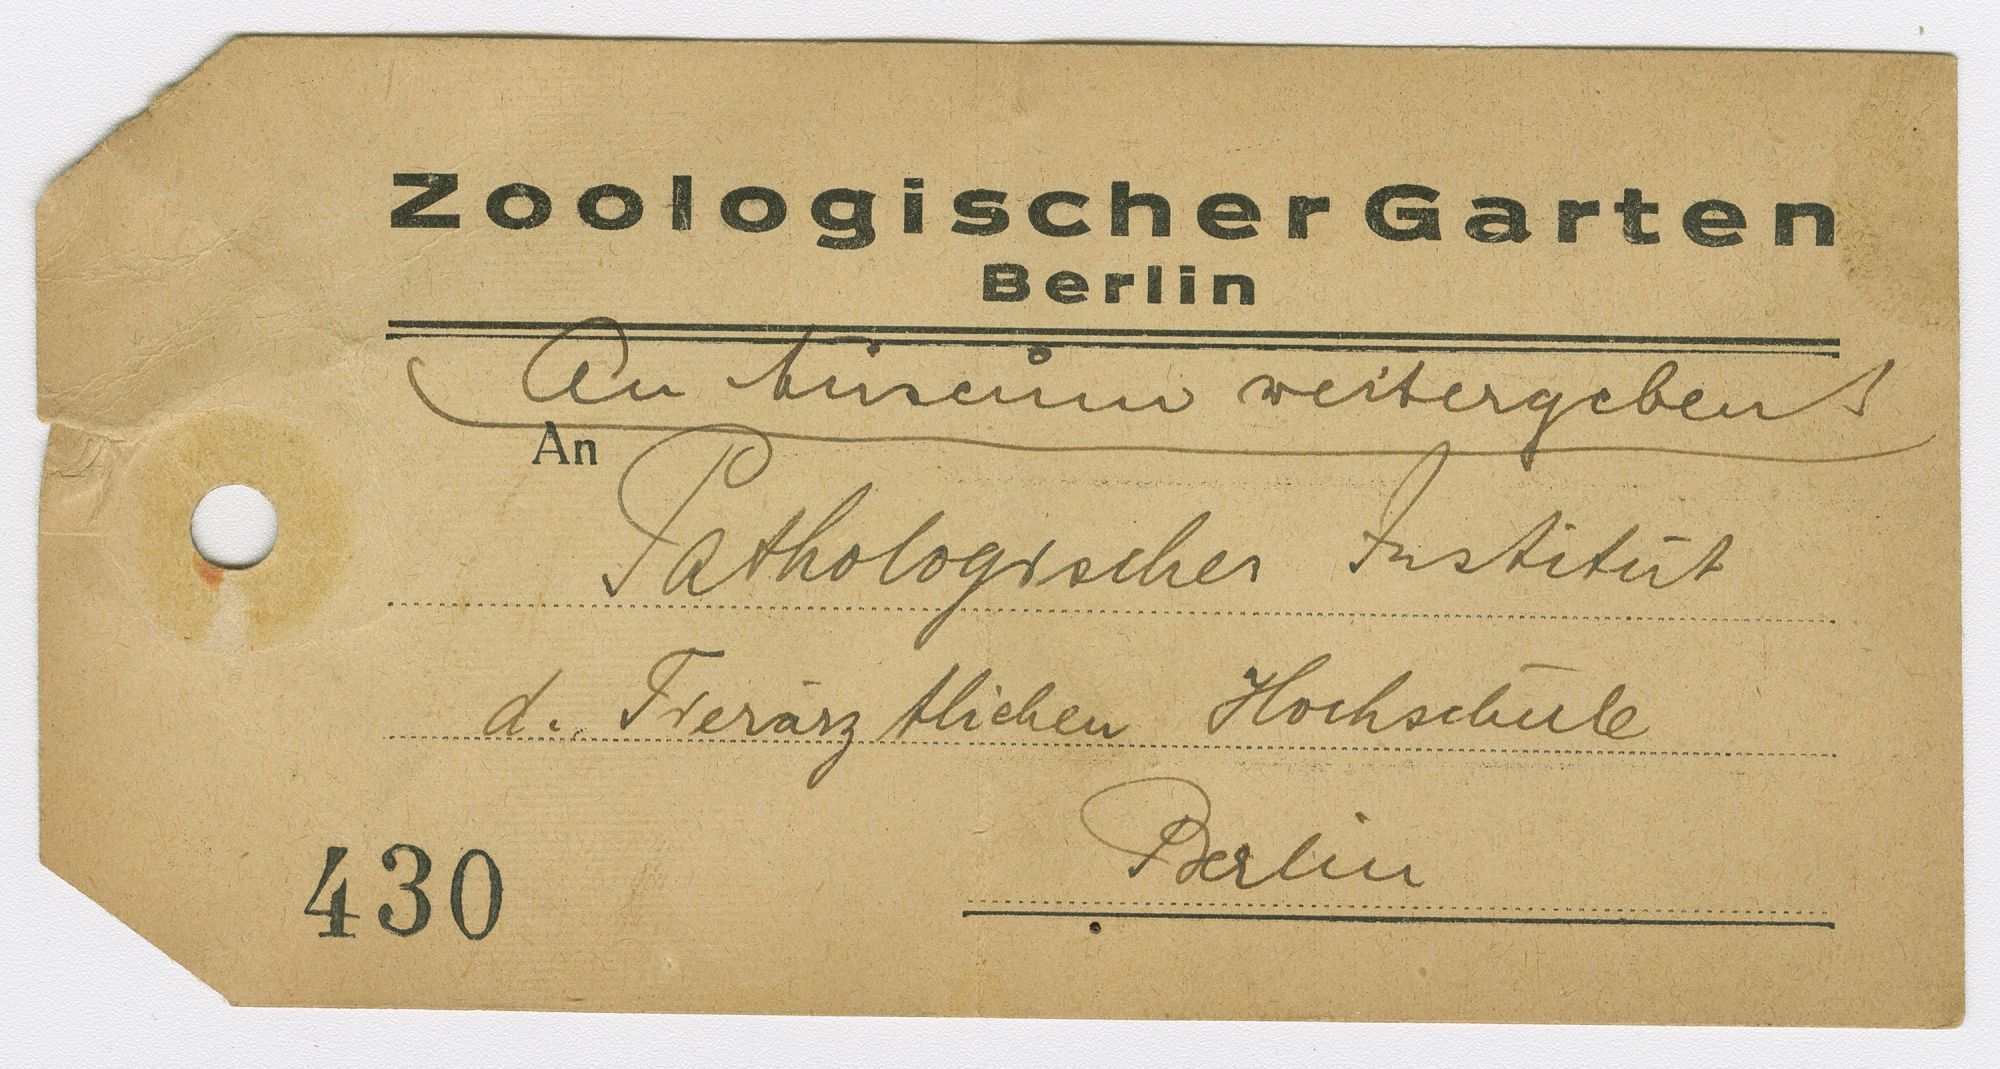 Zoologischer Garten
Berlin
An Museum weitergeben!
An
Pathologischer Institut
d. Tierärztlichen Hochschule
Berlin
430